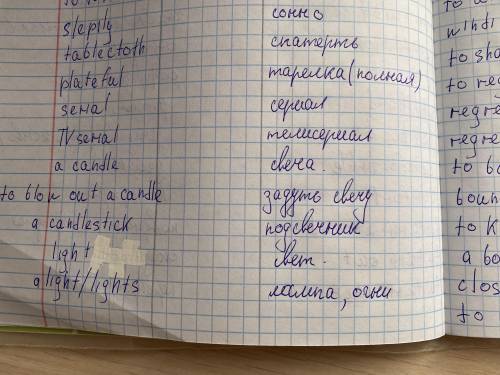 sleepily сонно
tablecloth скатерть
plateful тарелка (полная)
seнаl сериал
TV seнаl телисериал
a candle свеча.
to blow out a candle задуть свечу
a candlestick подсвечник
light свет.
a light/lights лампа, огни
windi
to sha
to
regre
regre
to bo
boun
to k
a bo
clos
to